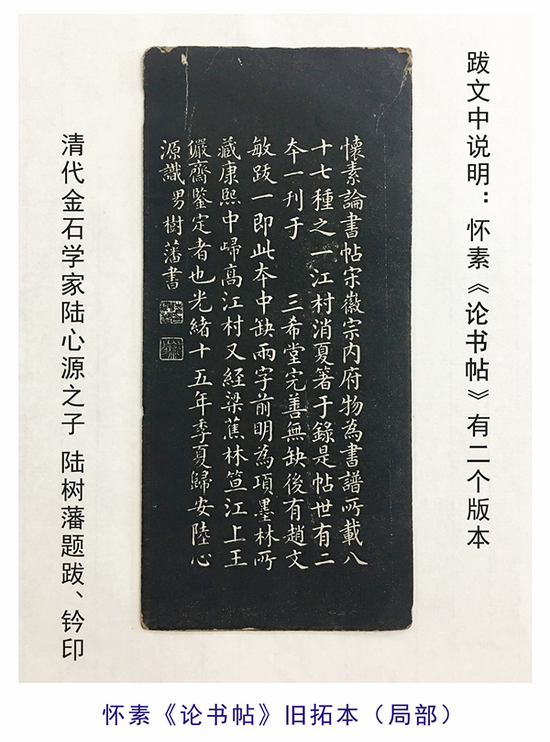 跋文中说明：怀素《论书帖》有二个版本
懷素論書帖宋徽宗内府物為書譜所載八
十七種之一江村消夏箸于錄是帖世有二
夲一刊于　三希堂完善無缺後有趙文
敏跋一即此夲中缺兩字前明為項墨林所
藏康熙中歸髙江村又經梁蕉林笪江上王
儼齋鑒定者也光緒十五年季夏歸安陸心
源識男樹藩書
清代金石学家陆心源之子 陆树藩题跋、钤印
怀素《论书帖》旧拓本（局部）